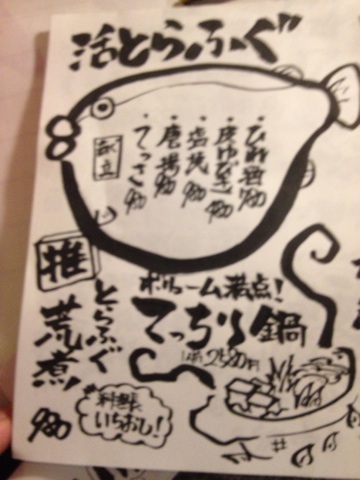 活とらふぐ
・ひれ酒 980
・皮ゆびき 980
・塩焼 980
・唐揚 980
・てっさ 980
献立
推
とらふぐ
荒煮
980
料理長
いちおし!
ボリューム満点!
てっちり鍋
1人前 2580円